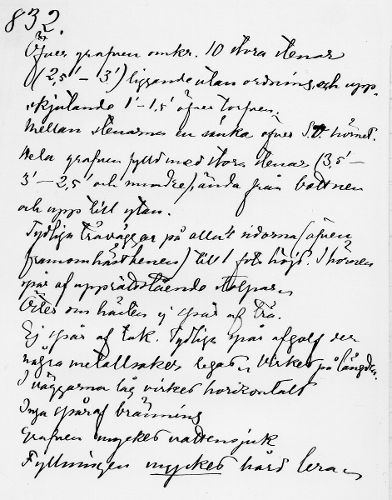 832.
Öfver grafven omkr. 10 stora stenar
(2,5' – 3') liggande utan ordning och upp-
skjutande 1' – 1,5' öfver torfven.
Mellan stenarna en sänka öfver S.V. hörnet.
Hela grafven fylld med stora stenar (3,5' –
3' – 2,5' och mindre) ända från bottnen
och upp till ytan.
Tydliga träväggar på alla 4 sidorna (äfven
framom hästbenen) till 1 fots höjd. I hörnen
spår af upprättstående stolpar.
Öster om hästen ej spår af trä.
Ej spår af tak. Tydliga spår af golf der
några metallsaker legat. Virket på längden.
I väggarna låg virket horizontalt
Inga spår af bränning
Grafven mycket vattensjuk
Fyllningen mycket hård lera